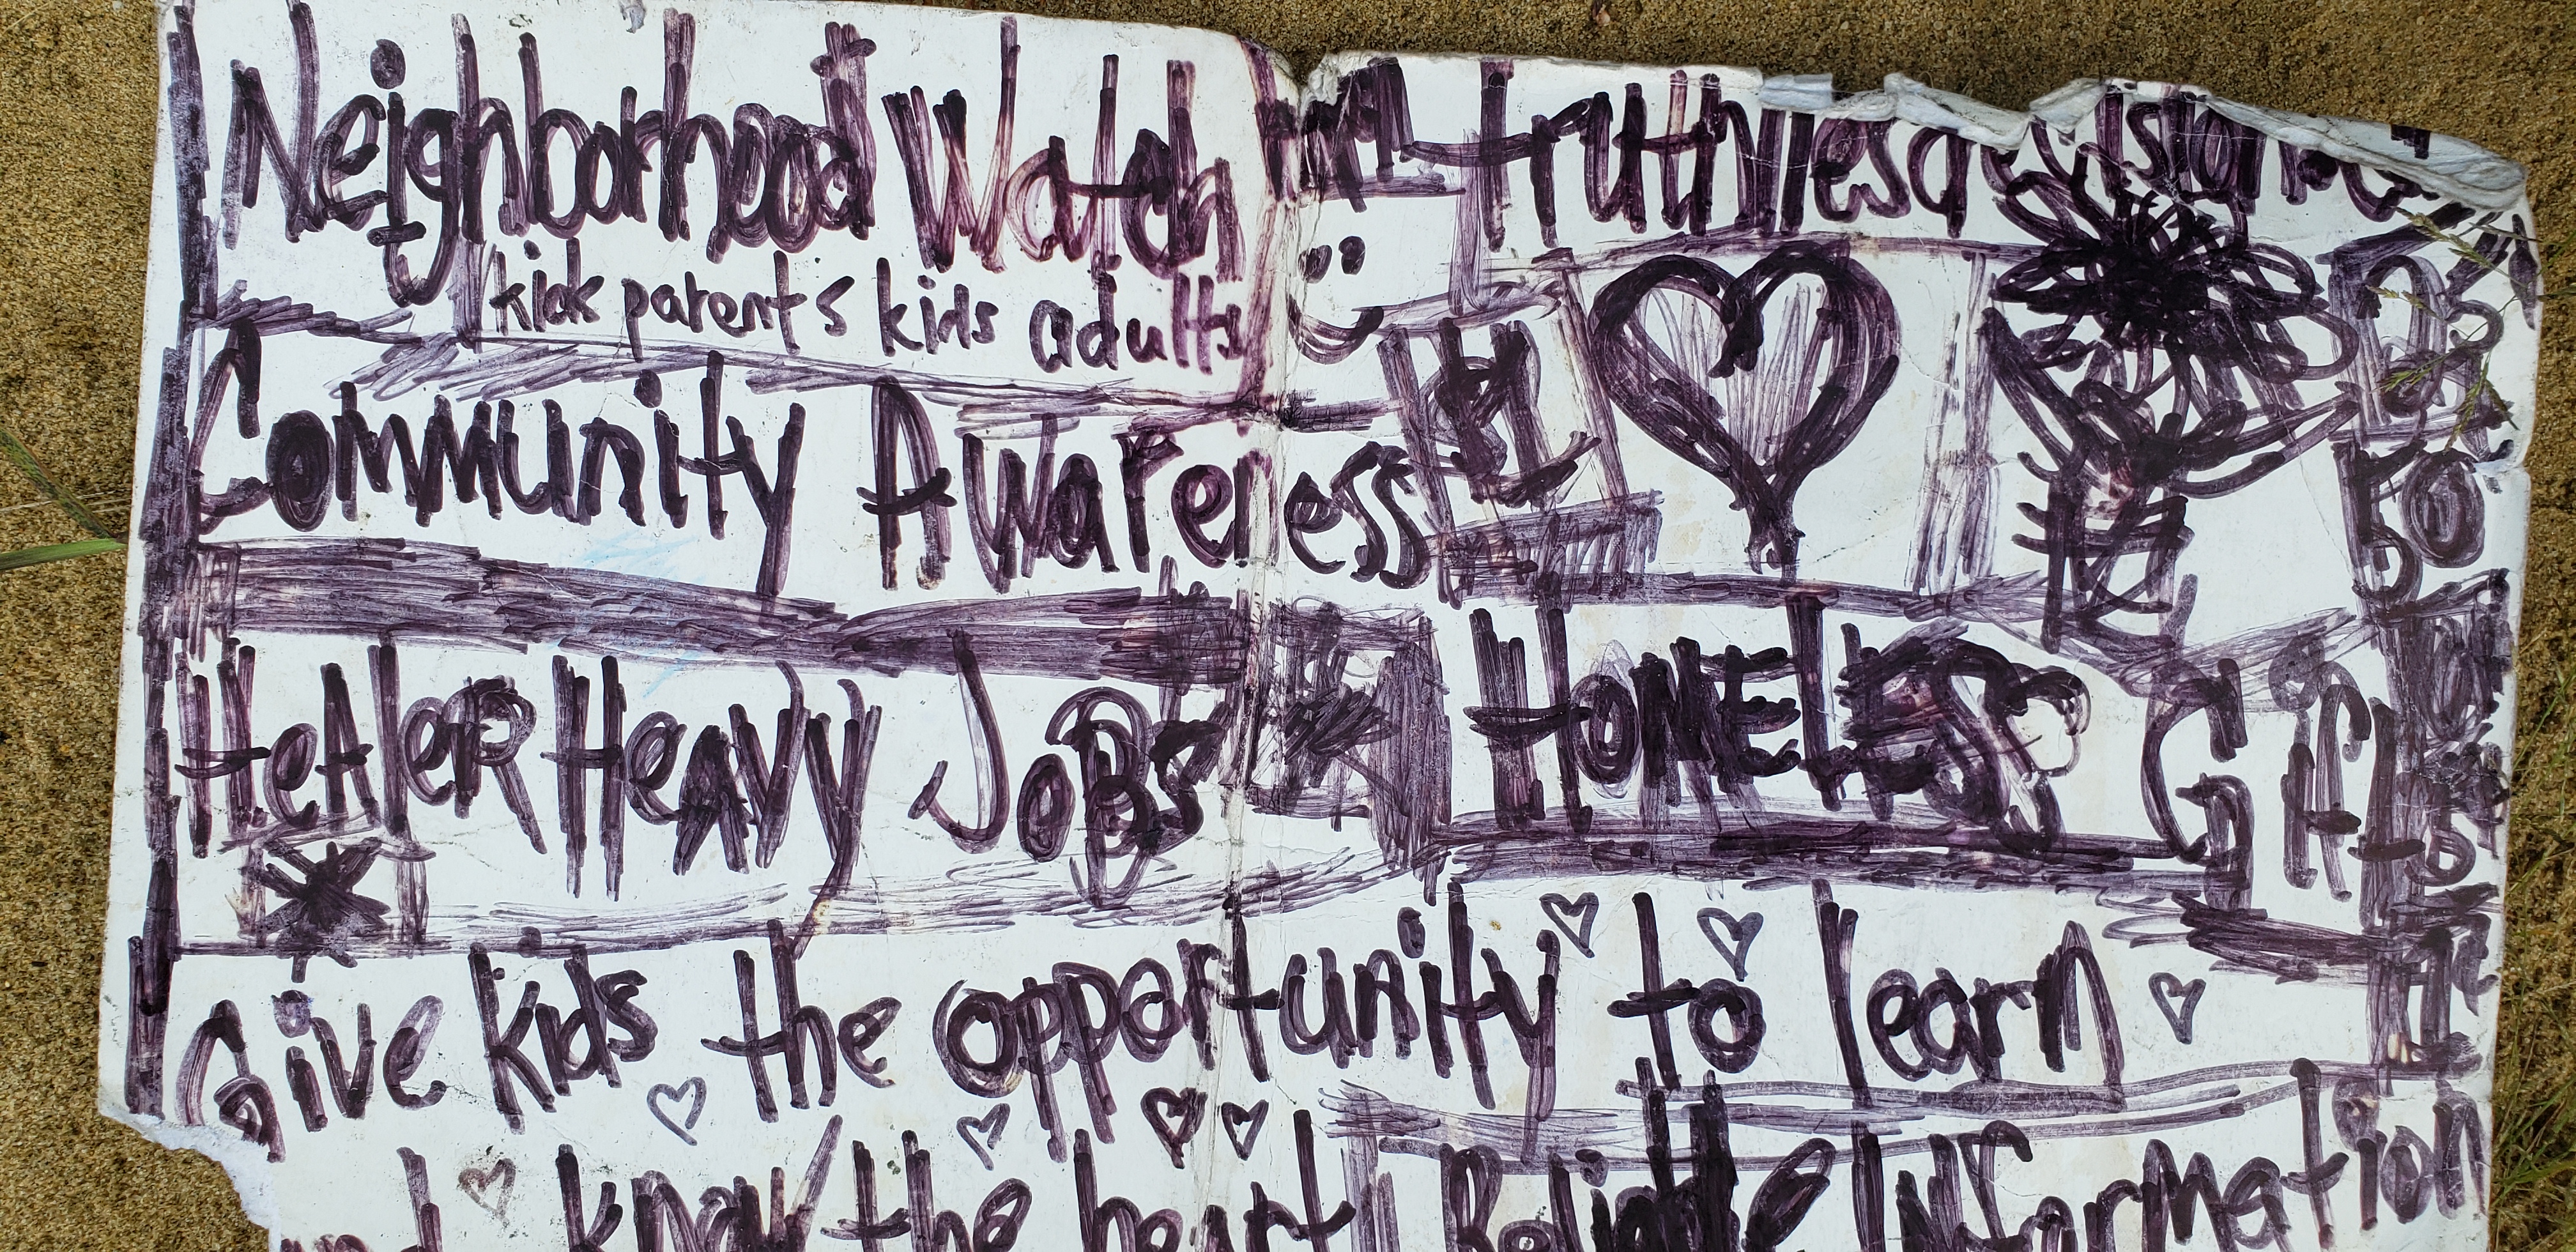 Neighborhood Watch
truthlies decision
kids parents kids adults
Community Awareness
HeAleR HeAvy JoBs
HOMELESS Gifts
Give kids the opportunity to learn
and know the heart Reliable Information